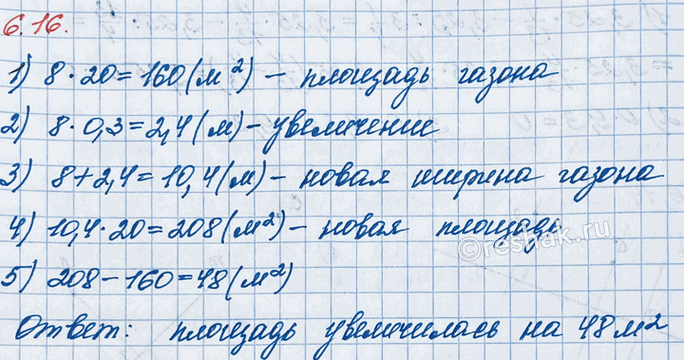 6.16.
1) 8 · 20 = 160 (м²) – площадь газона
2) 8 · 0,3 = 2,4 (м) – увеличение
3) 8 + 2,4 = 10,4 (м) – новая ширина газона
4) 10,4 · 20 = 208 (м²) – новая площадь
©reshak.ru
5) 208 – 160 = 48 (м²)
Ответ: площадь увеличилась на 48 м²